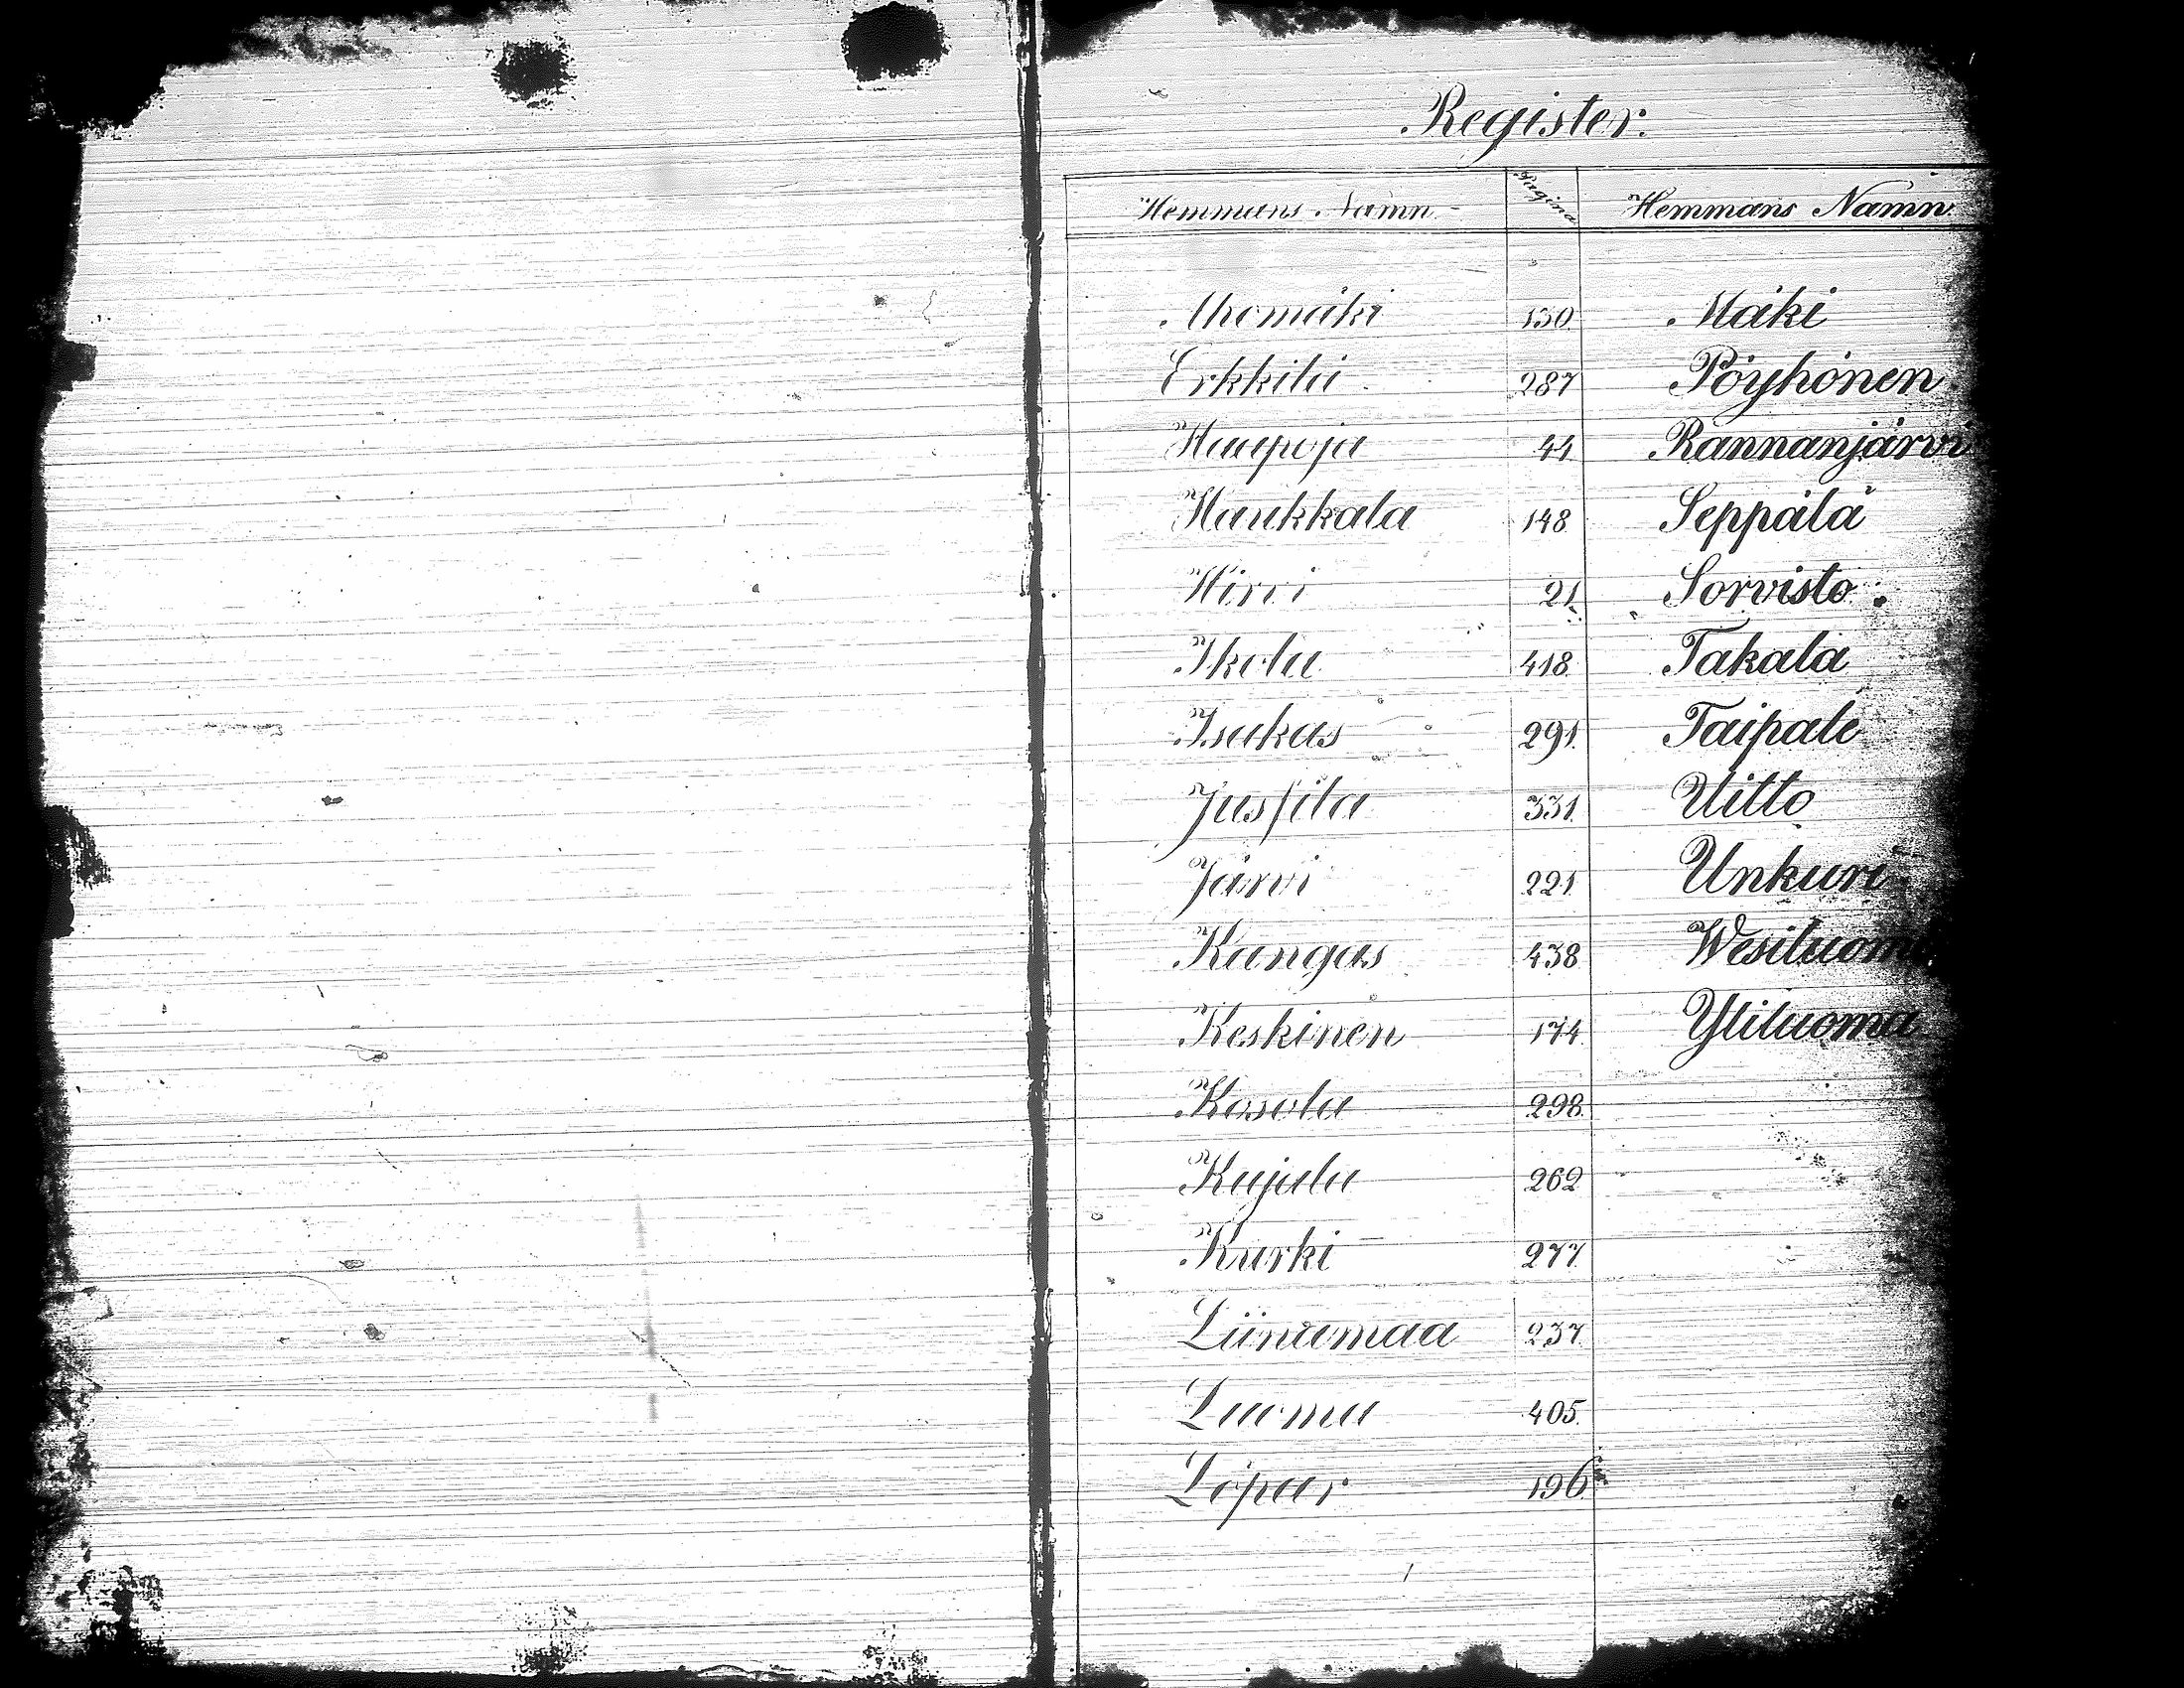 Register.
Hemmans Namn Pagina Hemmans Namn
Ahomäki 130. Mäki
Erkkilä 287 Pöyhönen
Haapoja 44. Rannanjärvi
Haukkala 148. Seppälä
Hirvi 21. Sorvisto
Ikola 418. Takala
Isakas 291. Taipale
Jussila 331. Uitto
Järvi 221. Unkuri
Kangas 438 Wesiluoma
Keskinen 174. Yliluoma
Kosola 298.
Kujala 262
Kurki 277.
Liinamaa 237.
Luoma 405.
Löpar 196